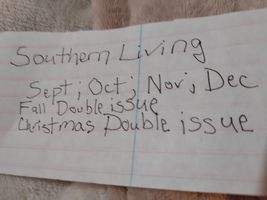 Southern Living
Sept; Oct; Nov; Dec
Fall Double issue
Christmas Double issue